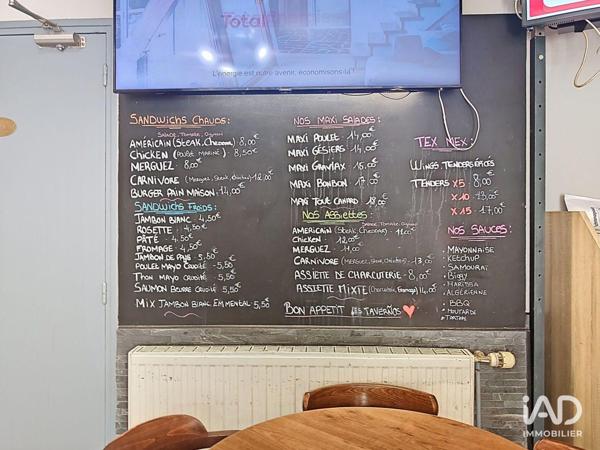 Total
L'énergie est notre avenir, économisons-la !
SANDWICHS CHAUDS :
SALADE, Tomate, Oignon
AMÉRICAIN (STEAK, CHEDDAR) 8,00€
CHICKEN (POULET MARINÉ) 8,50€
MERGUEZ 8,00€
CARNIVORE (Merguez, Steak, Chicken) 12,00€
BURGER PAIN MAISON 14,00€
SANDWICHS FROIDS :
JAMBON BLANC 4,50€
ROSETTE 4,50€
PÂTÉ 4,50€
FROMAGE 4,50€
JAMBON DE PAYS 5,50€
POULET MAYO CRUDITÉ 5,50€
THON MAYO CRUDITÉ 5,50€
SAUMON BEURRE CRUDITÉ 5,50€
MIX JAMBON BLANC EMMENTAL 5,50€
NOS MAXI SALADES :
MAXI POULET 14,00€
MAXI GÉSIERS 14,00€
MAXI GRAVLAX 15,00€
MAXI BONBON 17,00€
MAXI TOUT CANARD 18,00€
NOS ASSIETTES :
SALADE, Tomate, Oignon
AMERICAIN (Steak, Cheddar) 11,00€
CHICKEN 12,00€
MERGUEZ 11,00€
CARNIVORE (MERGUEZ, Steak, Chicken) 13,00€
ASSIETTE DE CHARCUTERIE 8,00€
ASSIETTE MIXTE (Charcuterie, Fromage) 14,00€
BON APPETIT LES TAVERÑOS
TEX MEX :
WINGS TENDERS ÉPICÉS
TENDERS X5 8,00€
X10 13,00€
X15 17,00€
NOS SAUCES :
- MAYONNAISE
- KETCHUP
- SAMOURAÏ
- BIGGY
- HARISSA
- ALGÉRIENNE
- BBQ
- MOUTARDE
- TARTARE
iAD
IMMOBILIER